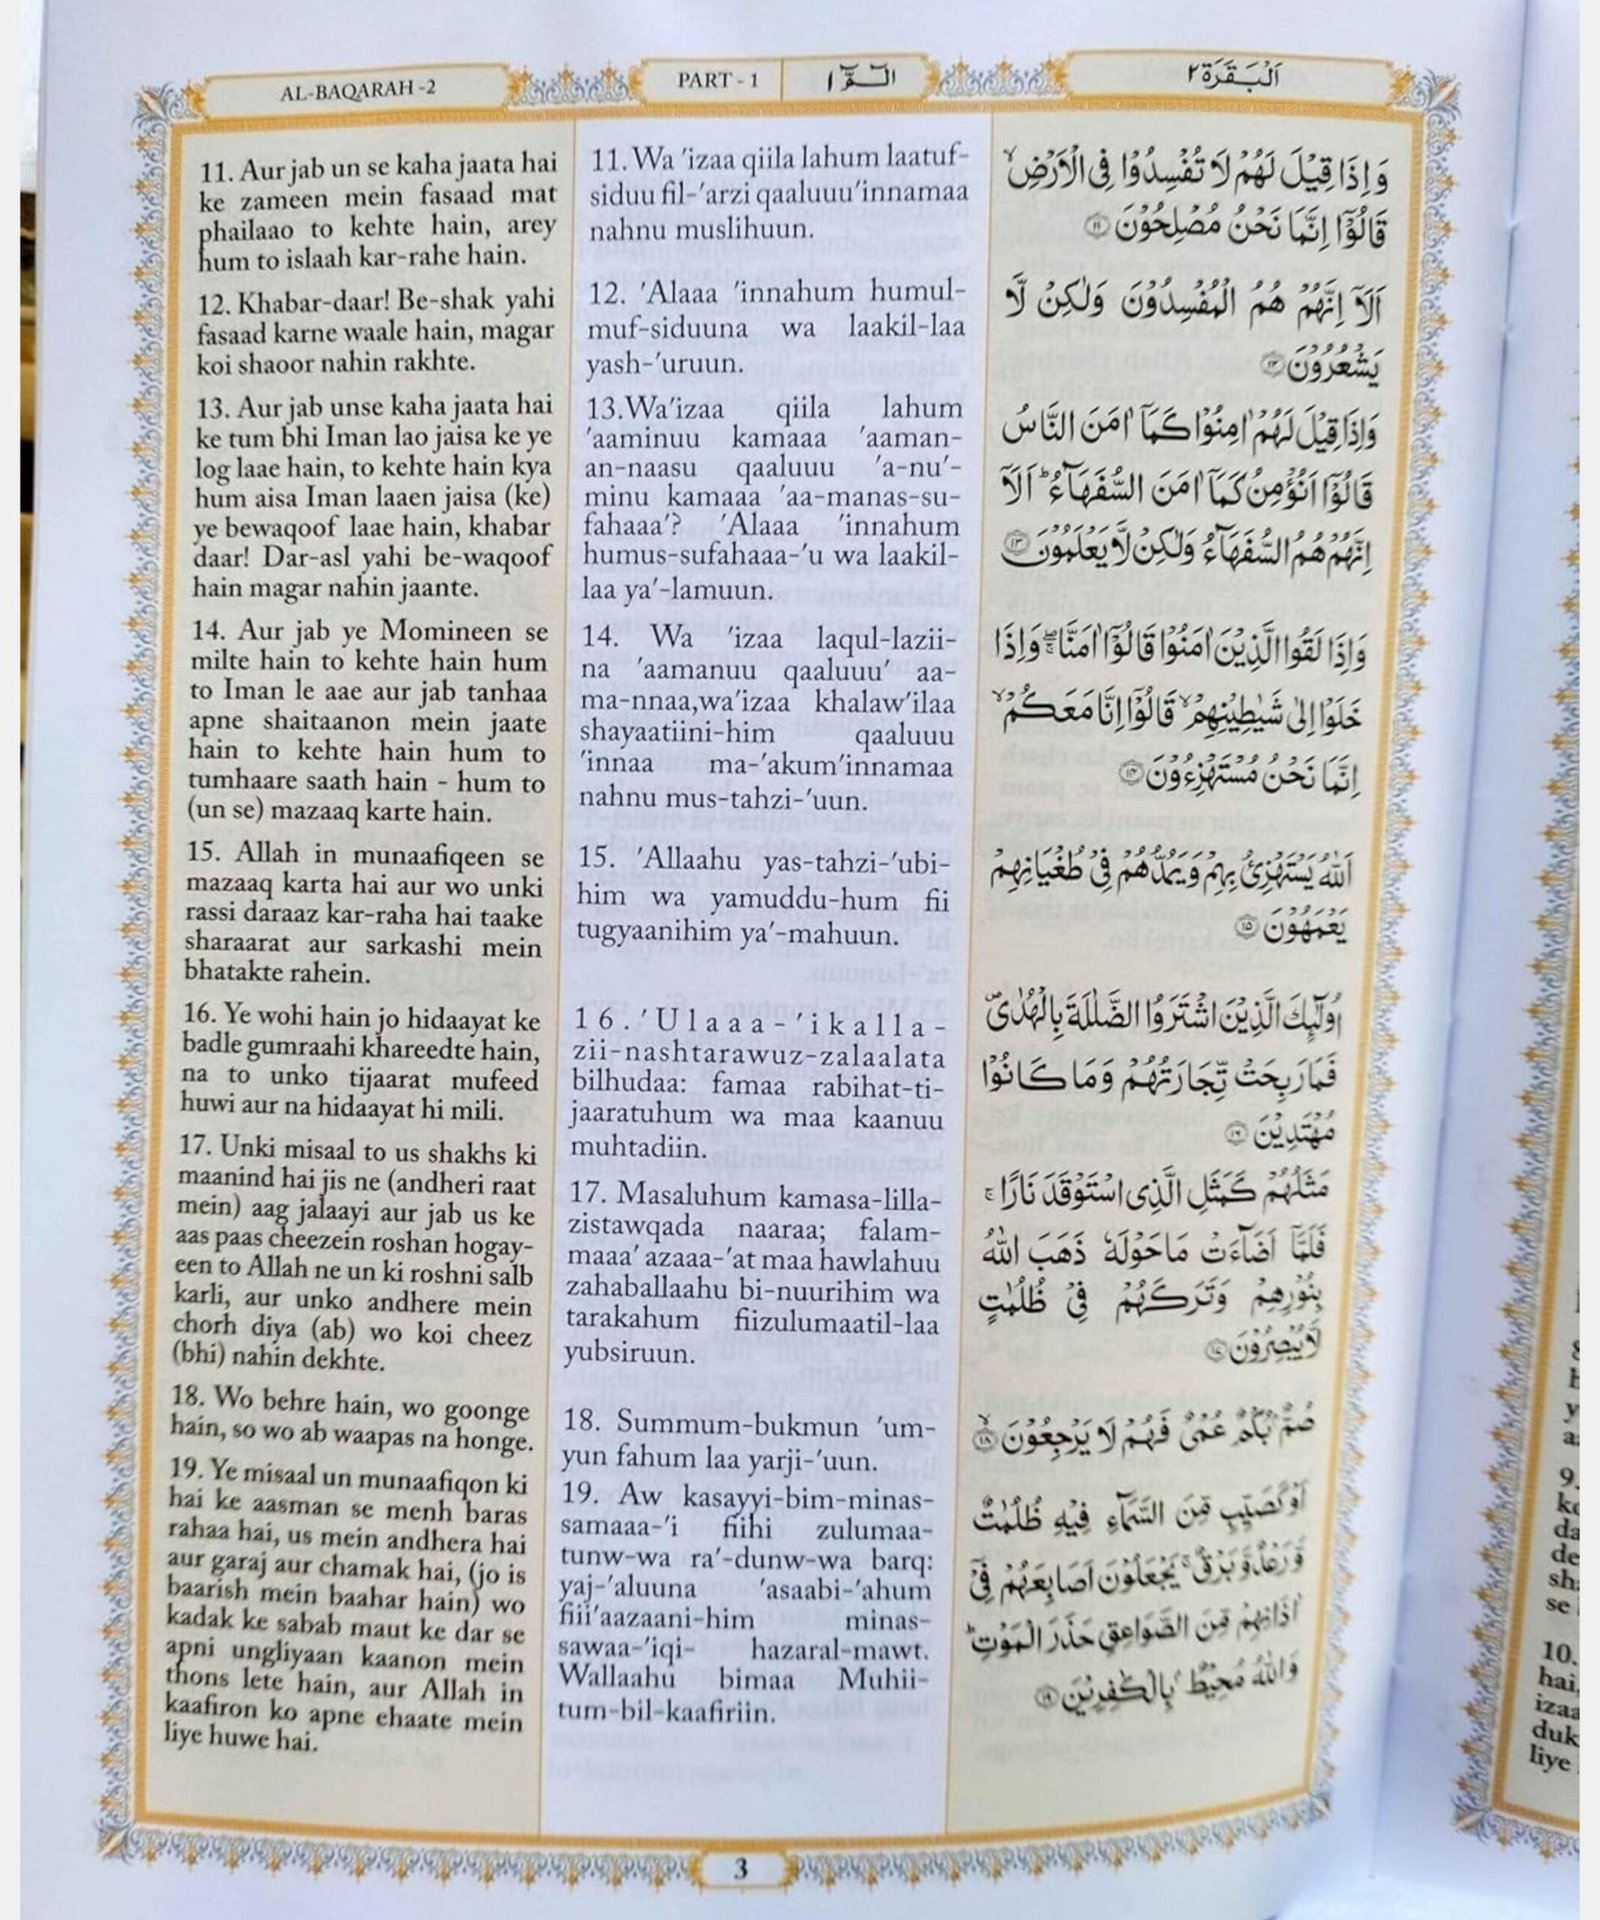 AL-BAQARAH -2
PART - 1
الٓـمّٓ ١
اَلْبَقَرَة ٢
11. Aur jab un se kaha jaata hai
ke zameen mein fasaad mat
phailaao to kehte hain, arey
hum to islaah kar-rahe hain.
12. Khabar-daar! Be-shak yahi
fasaad karne waale hain, magar
koi shaoor nahin rakhte.
13. Aur jab unse kaha jaata hai
ke tum bhi Iman lao jaisa ke ye
log laae hain, to kehte hain kya
hum aisa Iman laaen jaisa (ke)
ye bewaqoof laae hain, khabar
daar! Dar-asl yahi be-waqoof
hain magar nahin jaante.
14. Aur jab ye Momineen se
milte hain to kehte hain hum
to Iman le aae aur jab tanhaa
apne shaitaanon mein jaate
hain to kehte hain hum to
tumhaare saath hain - hum to
(un se) mazaaq karte hain.
15. Allah in munaafiqeen se
mazaaq karta hai aur wo unki
rassi daraaz kar-raha hai taake
sharaarat aur sarkashi mein
bhatakte rahein.
16. Ye wohi hain jo hidaayat ke
badle gumraahi khareedte hain,
na to unko tijaarat mufeed
huwi aur na hidaayat hi mili.
17. Unki misaal to us shakhs ki
maanind hai jis ne (andheri raat
mein) aag jalaayi aur jab us ke
aas paas cheezein roshan hogay-
een to Allah ne un ki roshni salb
karli, aur unko andhere mein
chorh diya (ab) wo koi cheez
(bhi) nahin dekhte.
18. Wo behre hain, wo goonge
hain, so wo ab waapas na honge.
19. Ye misaal un munaafiqon ki
hai ke aasman se menh baras
rahaa hai, us mein andhera hai
aur garaj aur chamak hai, (jo is
baarish mein baahar hain) wo
kadak ke sabab maut ke dar se
apni ungliyaan kaanon mein
thons lete hain, aur Allah in
kaafiron ko apne ehaate mein
liye huwe hai.
11. Wa 'izaa qiila lahum laatuf-
siduu fil-'arzi qaaluuu'innamaa
nahnu muslihuun.
12. 'Alaaa 'innahum humul-
muf-siduuna wa laakil-laa
yash-'uruun.
13.Wa'izaa qiila lahum
'aaminuu kamaaa 'aaman-
an-naasu qaaluuu 'a-nu'-
minu kamaaa 'aa-manas-su-
fahaaa'? 'Alaaa 'innahum
humus-sufahaaa-'u wa laakil-
laa ya'-lamuun.
14. Wa 'izaa laqul-lazii-
na 'aamanuu qaaluuu' aa-
ma-nnaa,wa'izaa khalaw'ilaa
shayaatiini-him qaaluuu
'innaa ma-'akum'innamaa
nahnu mus-tahzi-'uun.
15. 'Allaahu yas-tahzi-'ubi-
him wa yamuddu-hum fii
tugyaanihim ya'-mahuun.
16.'Ulaaa-'ikalla-
zii-nashtarawuz-zalaalata
bilhudaa: famaa rabihat-ti-
jaaratuhum wa maa kaanuu
muhtadiin.
17. Masaluhum kamasa-lilla-
zistawqada naaraa; falam-
maaa' azaaa-'at maa hawlahuu
zahaballaahu bi-nuurihim wa
tarakahum fiizulumaatil-laa
yubsiruun.
18. Summum-bukmun 'um-
yun fahum laa yarji-'uun.
19. Aw kasayyi-bim-minas-
samaaa-'i fiihi zulumaa-
tunw-wa ra'-dunw-wa barq:
yaj-'aluuna 'asaabi-'ahum
fiii'aazaani-him minas-
sawaa-'iqi- hazaral-mawt.
Wallaahu bimaa Muhii-
tum-bil-kaafiriin.
وَ اِذَا قِيْلَ لَهُمْ لَا تُفْسِدُوْا فِى الْاَرْضِ ۙ
قَالُوْٓا اِنَّمَا نَحْنُ مُصْلِحُوْنَ ١١
اَلَآ اِنَّهُمْ هُمُ الْمُفْسِدُوْنَ وَلٰكِنْ لَّا
يَشْعُرُوْنَ ١٢
وَاِذَا قِيْلَ لَهُمْ اٰمِنُوْا كَمَآ اٰمَنَ النَّاسُ
قَالُوْٓا اَنُؤْمِنُ كَمَآ اٰمَنَ السُّفَهَآءُ ؕ اَلَآ
اِنَّهُمْ هُمُ السُّفَهَآءُ وَلٰكِنْ لَّا يَعْلَمُوْنَ ١٣
وَاِذَا لَقُوا الَّذِيْنَ اٰمَنُوْا قَالُوْٓا اٰمَنَّا ۖۚ وَاِذَا
خَلَوْا اِلٰى شَيٰطِيْنِهِمْ ۙ قَالُوْٓا اِنَّا مَعَكُمْ ۙ
اِنَّمَا نَحْنُ مُسْتَهْزِءُوْنَ ١٤
اَللّٰهُ يَسْتَهْزِئُ بِهِمْ وَيَمُدُّهُمْ فِىْ طُغْيَانِهِمْ
يَعْمَهُوْنَ ١٥
اُولٰٓئِكَ الَّذِيْنَ اشْتَرَوُا الضَّلٰلَةَ بِالْهُدٰى ۪
فَمَا رَبِحَتْ تِّجَارَتُهُمْ وَمَا كَانُوْا
مُهْتَدِيْنَ ١٦
مَثَلُهُمْ كَمَثَلِ الَّذِى اسْتَوْقَدَ نَارًا ۚ
فَلَمَّآ اَضَآءَتْ مَا حَوْلَهٗ ذَهَبَ اللّٰهُ
بِنُوْرِهِمْ وَتَرَكَهُمْ فِىْ ظُلُمٰتٍ
لَّا يُبْصِرُوْنَ ١٧
صُمٌّۢ بُكْمٌ عُمْىٌ فَهُمْ لَا يَرْجِعُوْنَ ۙ ١٨
اَوْ كَصَيِّبٍ مِّنَ السَّمَآءِ فِيْهِ ظُلُمٰتٌ
وَّرَعْدٌ وَّبَرْقٌ ۚ يَجْعَلُوْنَ اَصَابِعَهُمْ فِىْٓ
اٰذَانِهِمْ مِّنَ الصَّوَاعِقِ حَذَرَ الْمَوْتِ ؕ
وَاللّٰهُ مُحِيْطٌۢ بِالْكٰفِرِيْنَ ١٩
3
9.
10.
hai,
izaa
duk
liye